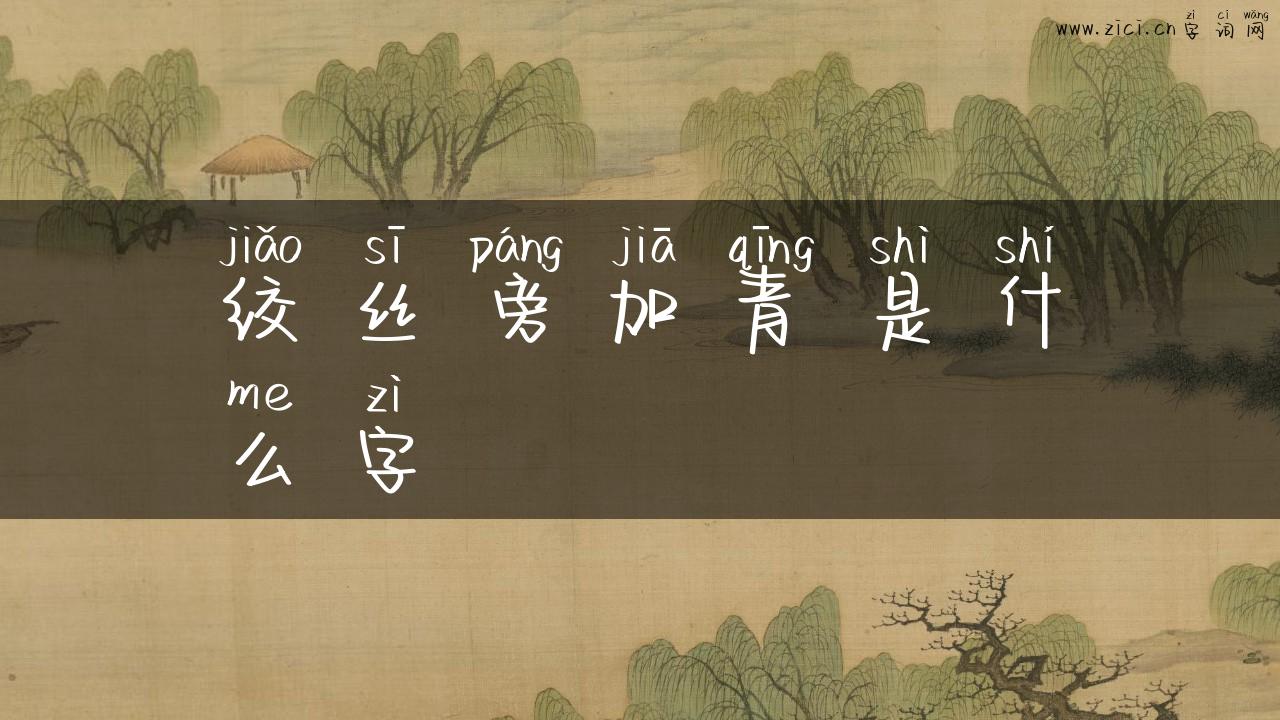 zì cí wǎng
www.zici.cn 字 词 网
jiǎo sī páng jiā qīng shì shí
绞 丝 旁 加 青 是 什
me zì
么 字